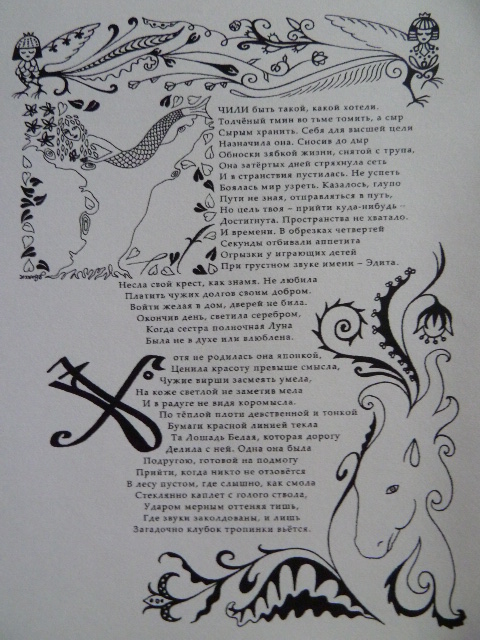 ЧИЛИ быть такой, какой хотели.
Толчёный тмин во тьме томить, а сыр
Сырым хранить. Себя для высшей цели
Назначила она. Сносив до дыр
Обноски зябкой жизни, снятой с трупа,
Она затёртых дней стряхнула сеть
И в странствия пустилась. Не успеть
Боялась мир узреть. Казалось, глупо
Пути не зная, отправляться в путь,
Но цель твоя – прийти куда-нибудь –
Достигнута. Пространства не хватало.
И времени. В обрезках четвергей
Секунды отбивали аппетита
Огрызки у играющих детей
При грустном звуке имени – Элита.
Несла свой крест, как знамя. Не любила
Платить чужих долгов своим добром.
Войти желая в дом, дверей не била.
Окончив день, светила серебром,
Когда сестра полночная Луна
Была не в духе или влюблена.
Хотя не родилась она японкой,
Ценила красоту превыше смысла,
Чужие вирши засмеять умела,
На коже светлой не заметив мела
И в радуге не видя коромысла.
По тёплой плоти девственной и тонкой
Бумаги красной линией текла
Та Лошадь Белая, которая дорогу
Делила с ней. Одна она была
Подругою, готовой на подмогу
Прийти, когда никто не отзовётся
В лесу пустом, где слышно, как смола
Стеклянно каплет с голого ствола,
Ударом мерным оттеняя тишь,
Где звуки заколдованы, и лишь
Загадочно клубок тропинки вьётся.